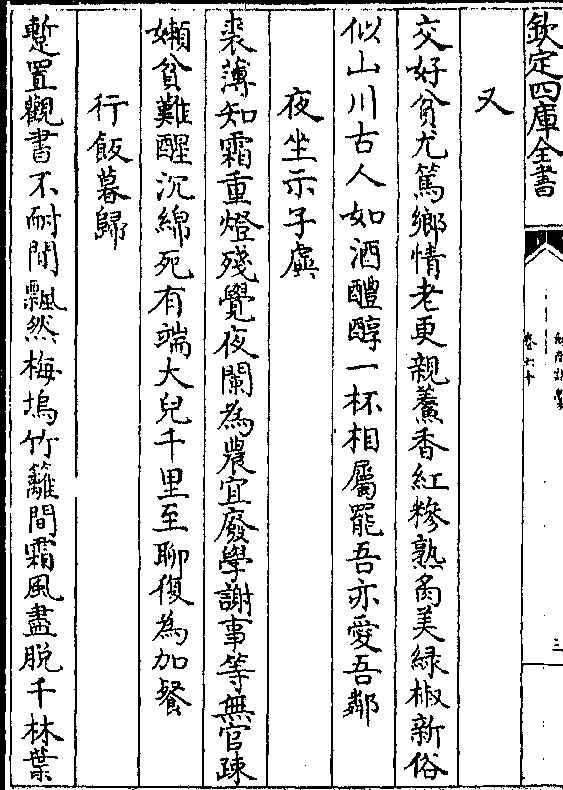 欽定四庫全書
卷六十
三
又
交好貧尤篤鄉情老更親鱻香紅糝熟臠美綠椒新俗
似山川古人如酒醴醇一杯相屬罷吾亦愛吾鄰
夜坐示子虡
裘薄知霜重燈殘覺夜闌為農宜廢學謝事等無官疎
嬾貧難醒沉綿死有端大兒千里至聊復為加餐
行飯暮歸
蹔置觀書不耐閒飄然梅塢竹籬間霜風盡脱千林葉